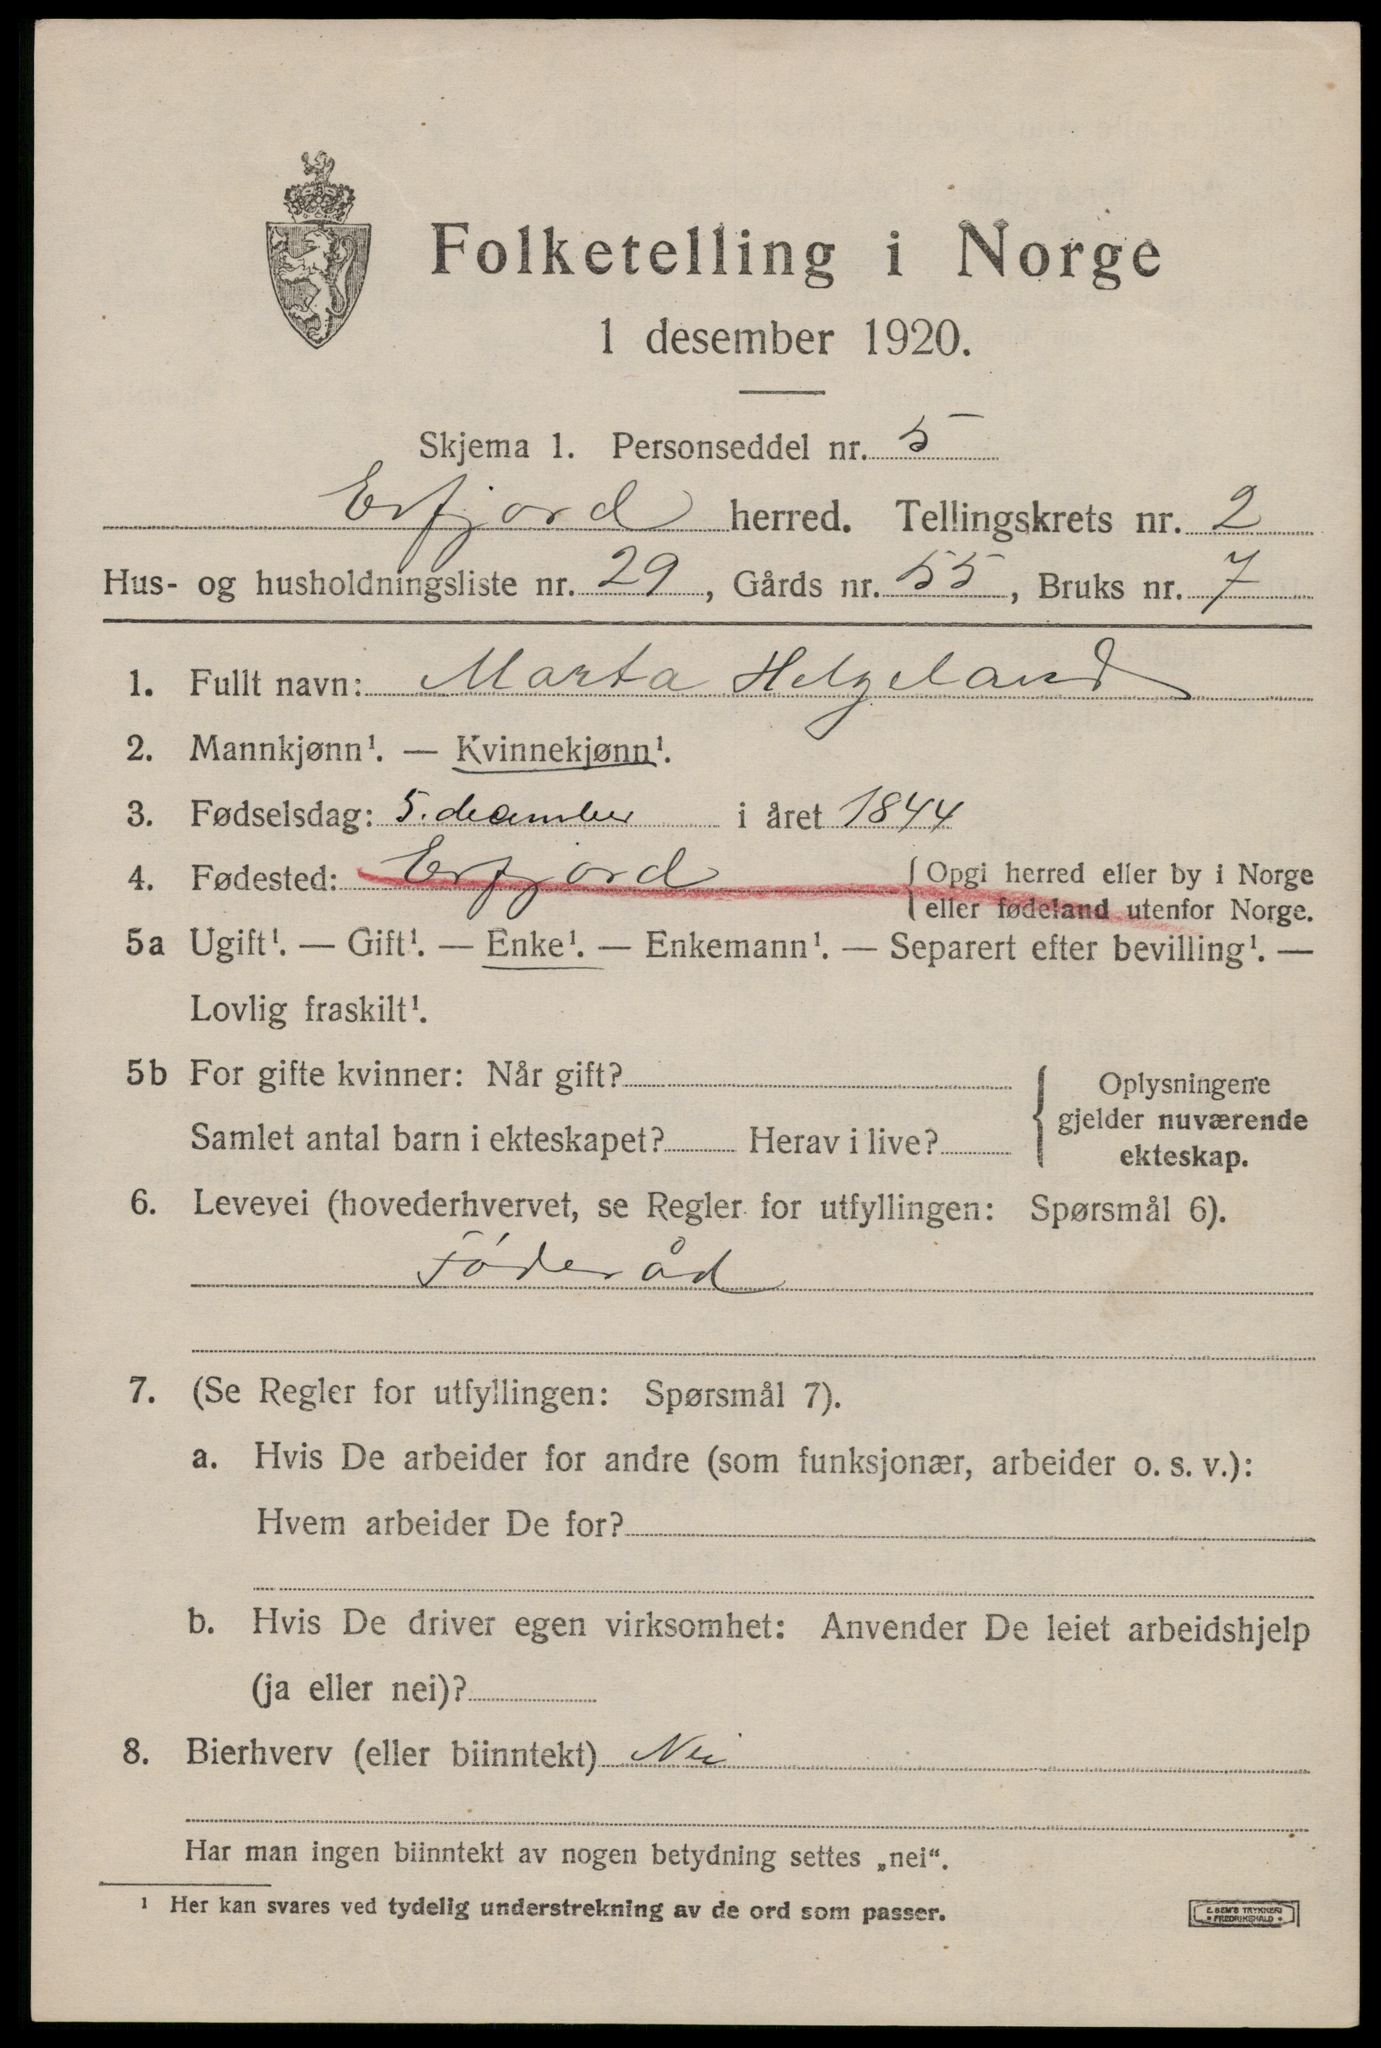 Folketelling i Norge
1 desember 1920.
Skjema 1. Personseddel nr. 5
Erfjord herred. Tellingskrets nr. 2
Hus- og husholdningsliste nr. 29, Gårds nr. 55, Bruks nr. 7
1. Fullt navn: Marta Helgeland
2. Mannkjønn¹. — Kvinnekjønn¹.
3. Fødselsdag: 5. december i året 1844
4. Fødested: Erfjord { Opgi herred eller by i Norge
eller fødeland utenfor Norge.
5a Ugift¹. — Gift¹. — Enke¹. — Enkemann¹. — Separert efter bevilling¹. —
Lovlig fraskilt¹.
5b For gifte kvinner: Når gift? { Oplysningene
gjelder nuværende
Samlet antal barn i ekteskapet? Herav i live?
ekteskap.
6. Levevei (hovederhvervet, se Regler for utfyllingen: Spørsmål 6).
Føderåd
7. (Se Regler for utfyllingen: Spørsmål 7).
a. Hvis De arbeider for andre (som funksjonær, arbeider o. s. v.):
Hvem arbeider De for?
b. Hvis De driver egen virksomhet: Anvender De leiet arbeidshjelp
(ja eller nei)?
8. Bierhverv (eller biinntekt) Nei
Har man ingen biinntekt av nogen betydning settes „nei“.
¹ Her kan svares ved tydelig understrekning av de ord som passer.
E. SEM'S TRYKKERI
• FREDRIKSHALD •